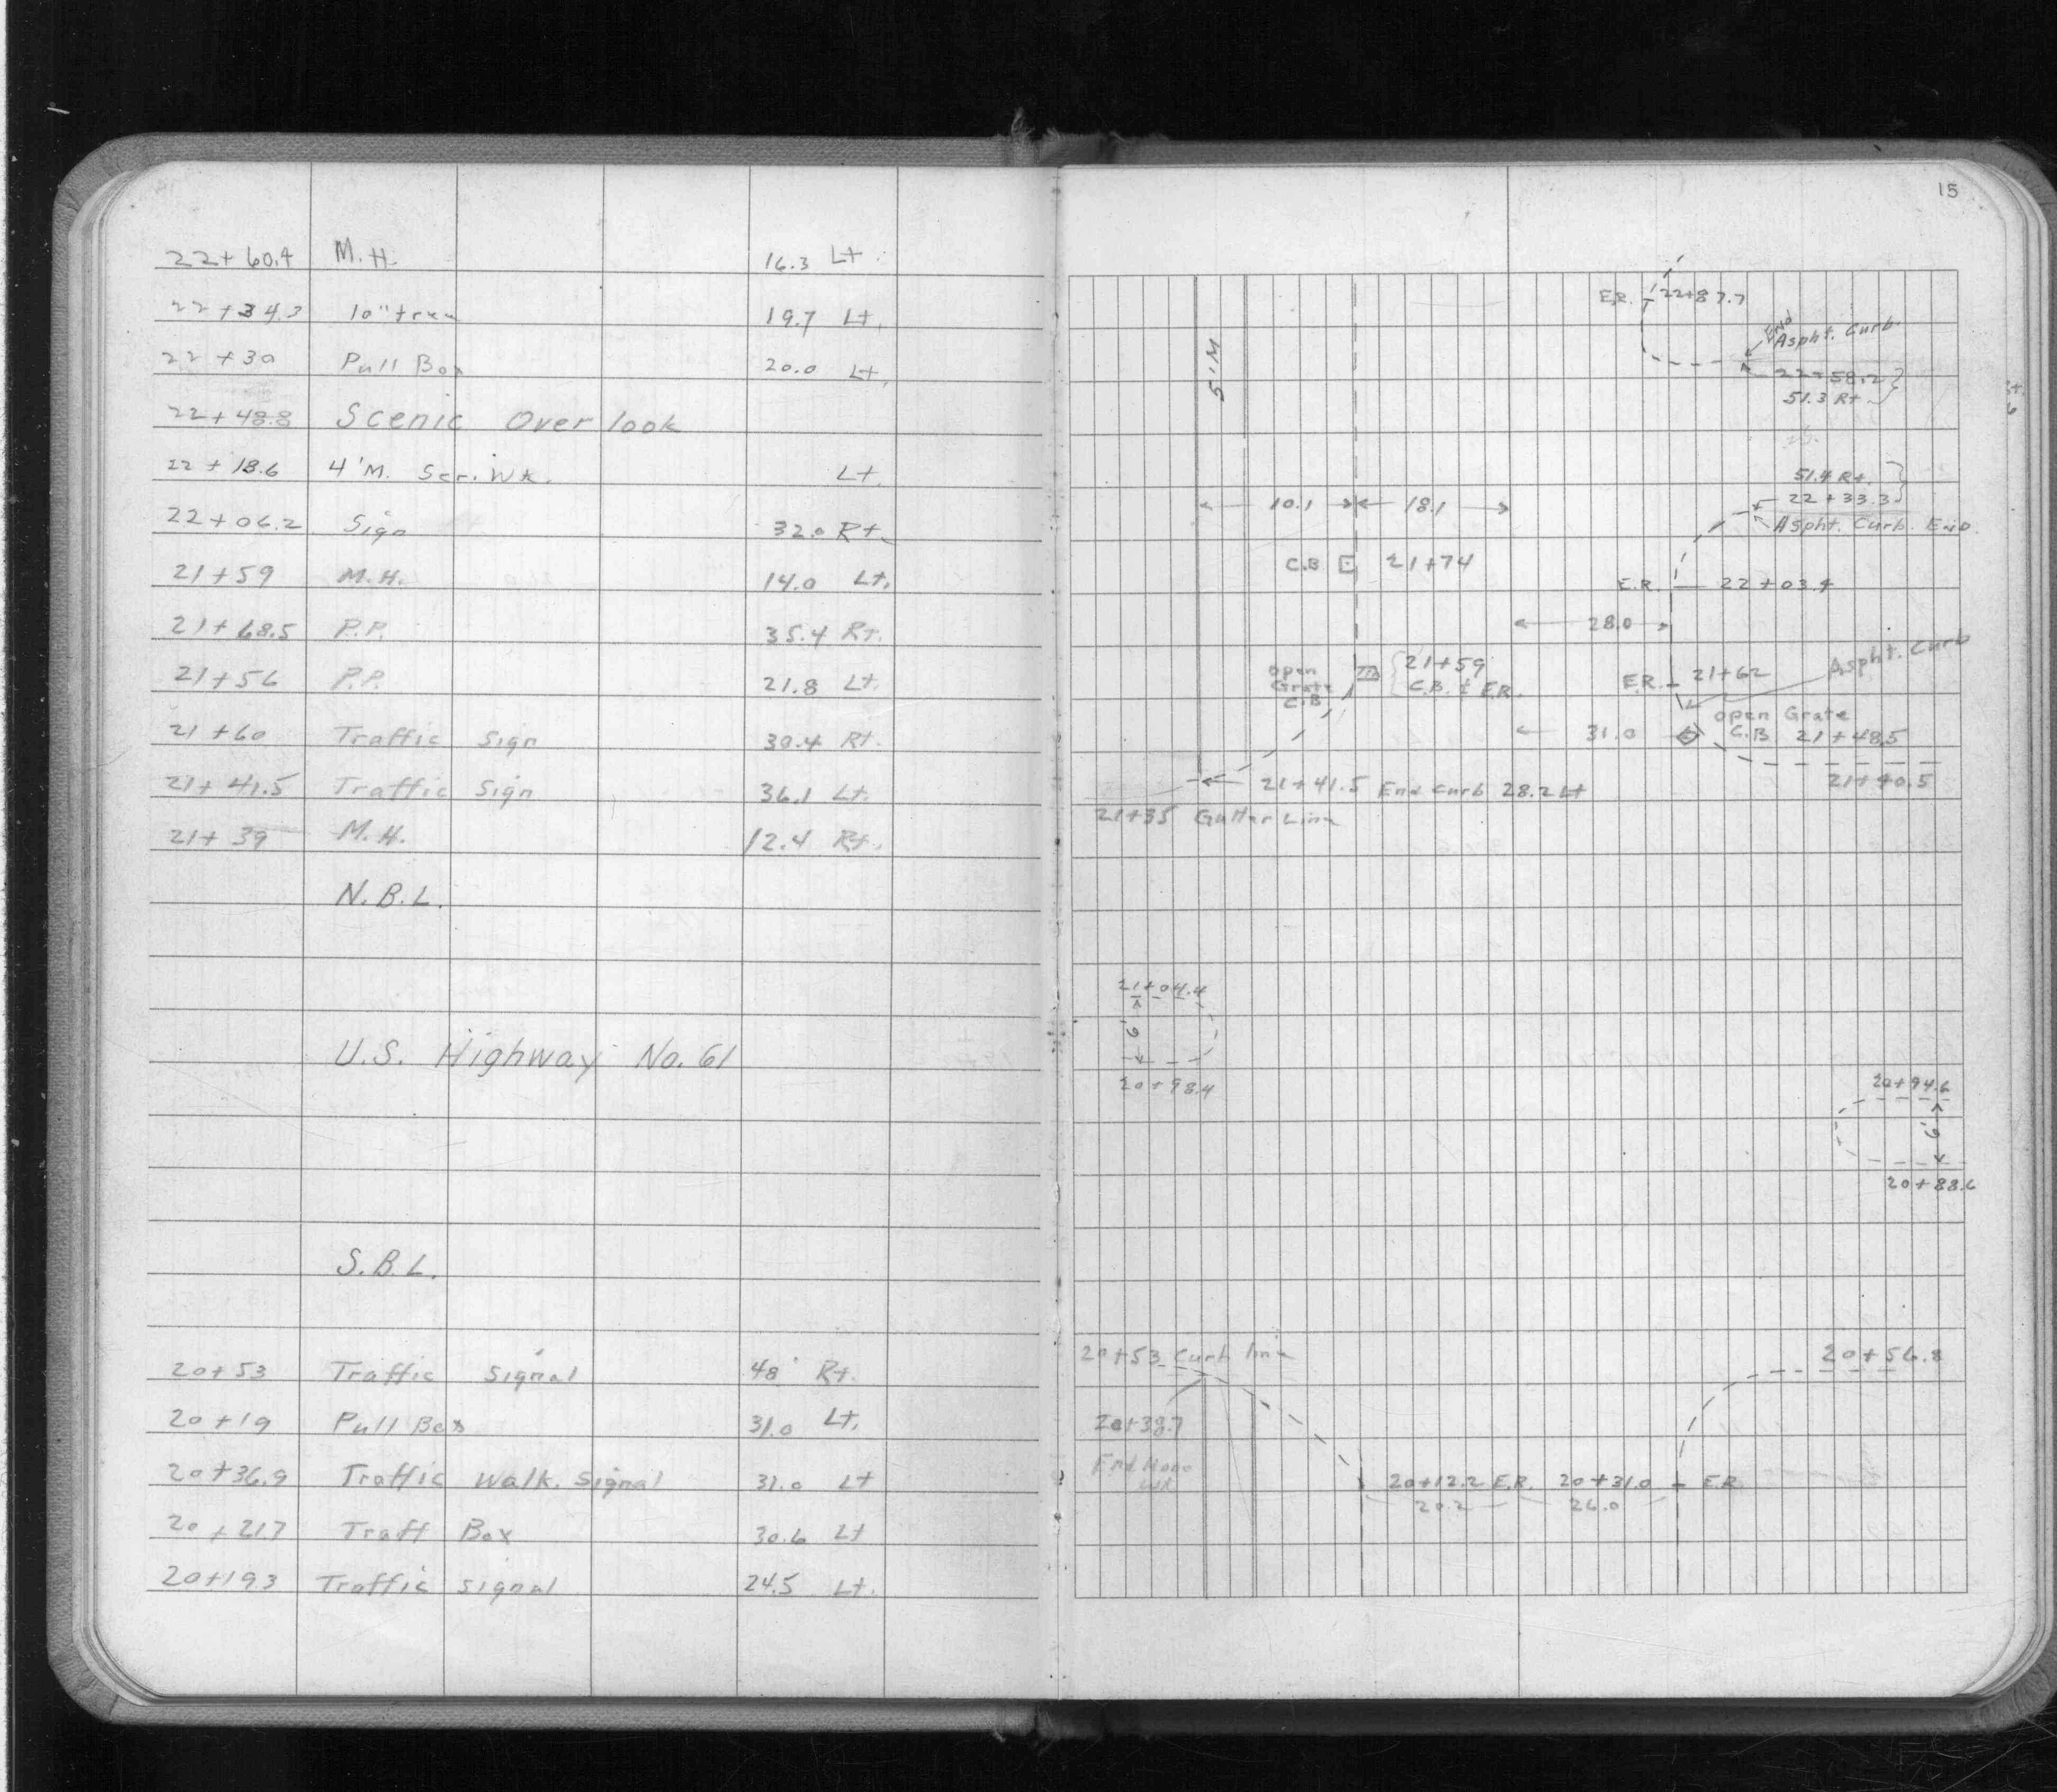 22+60.4 M.H. 16.3 Lt.
22+34.3 10" tree 19.7 Lt.
22+30 Pull Box 20.0 Lt.
22+48.8 Scenic Over look
22+18.6 4'M. Scr. Wk. Lt.
22+06.2 Sign 32.0 Rt.
21+59 M.H. 14.0 Lt.
21+68.5 P.P. 35.4 Rt.
21+56 P.P. 21.8 Lt.
21+60 Traffic Sign 30.4 Rt.
21+41.5 Traffic Sign 36.1 Lt.
21+39 M.H. 12.4 Rt.
N.B.L.
U.S. Highway No. 61
S.B.L.
20+53 Traffic Signal 48' Rt.
20+19 Pull Box 31.0 Lt.
20+36.9 Traffic Walk. Signal 31.0 Lt
20+21.7 Traff Box 30.6 Lt
20+19.3 Traffic signal 24.5 Lt.
15
E.R. 22+87.7
END
Aspht. Curb
22+58.2
51.3 Rt.
5'M
51.4 Rt.
22+33.3
Aspht. Curb. End.
10.1 18.1
C.B 21+74
E.R. 22+03.4
28.0
Aspht. Curb
open Grate C.B.
21+59
C.B. & E.R.
E.R. 21+62
open Grate
C.B. 21+48.5
31.0
21+40.5
21+41.5 End Curb 28.2 Lt
21+35 Gutter Line
21+04.4
6'
20+98.4
20+94.6
6'
20+88.6
20+53 Curb line
20+56.8
20+38.7
End Mono
Wk
20+12.2 E.R. 20+31.0 E.R.
20.2 26.0